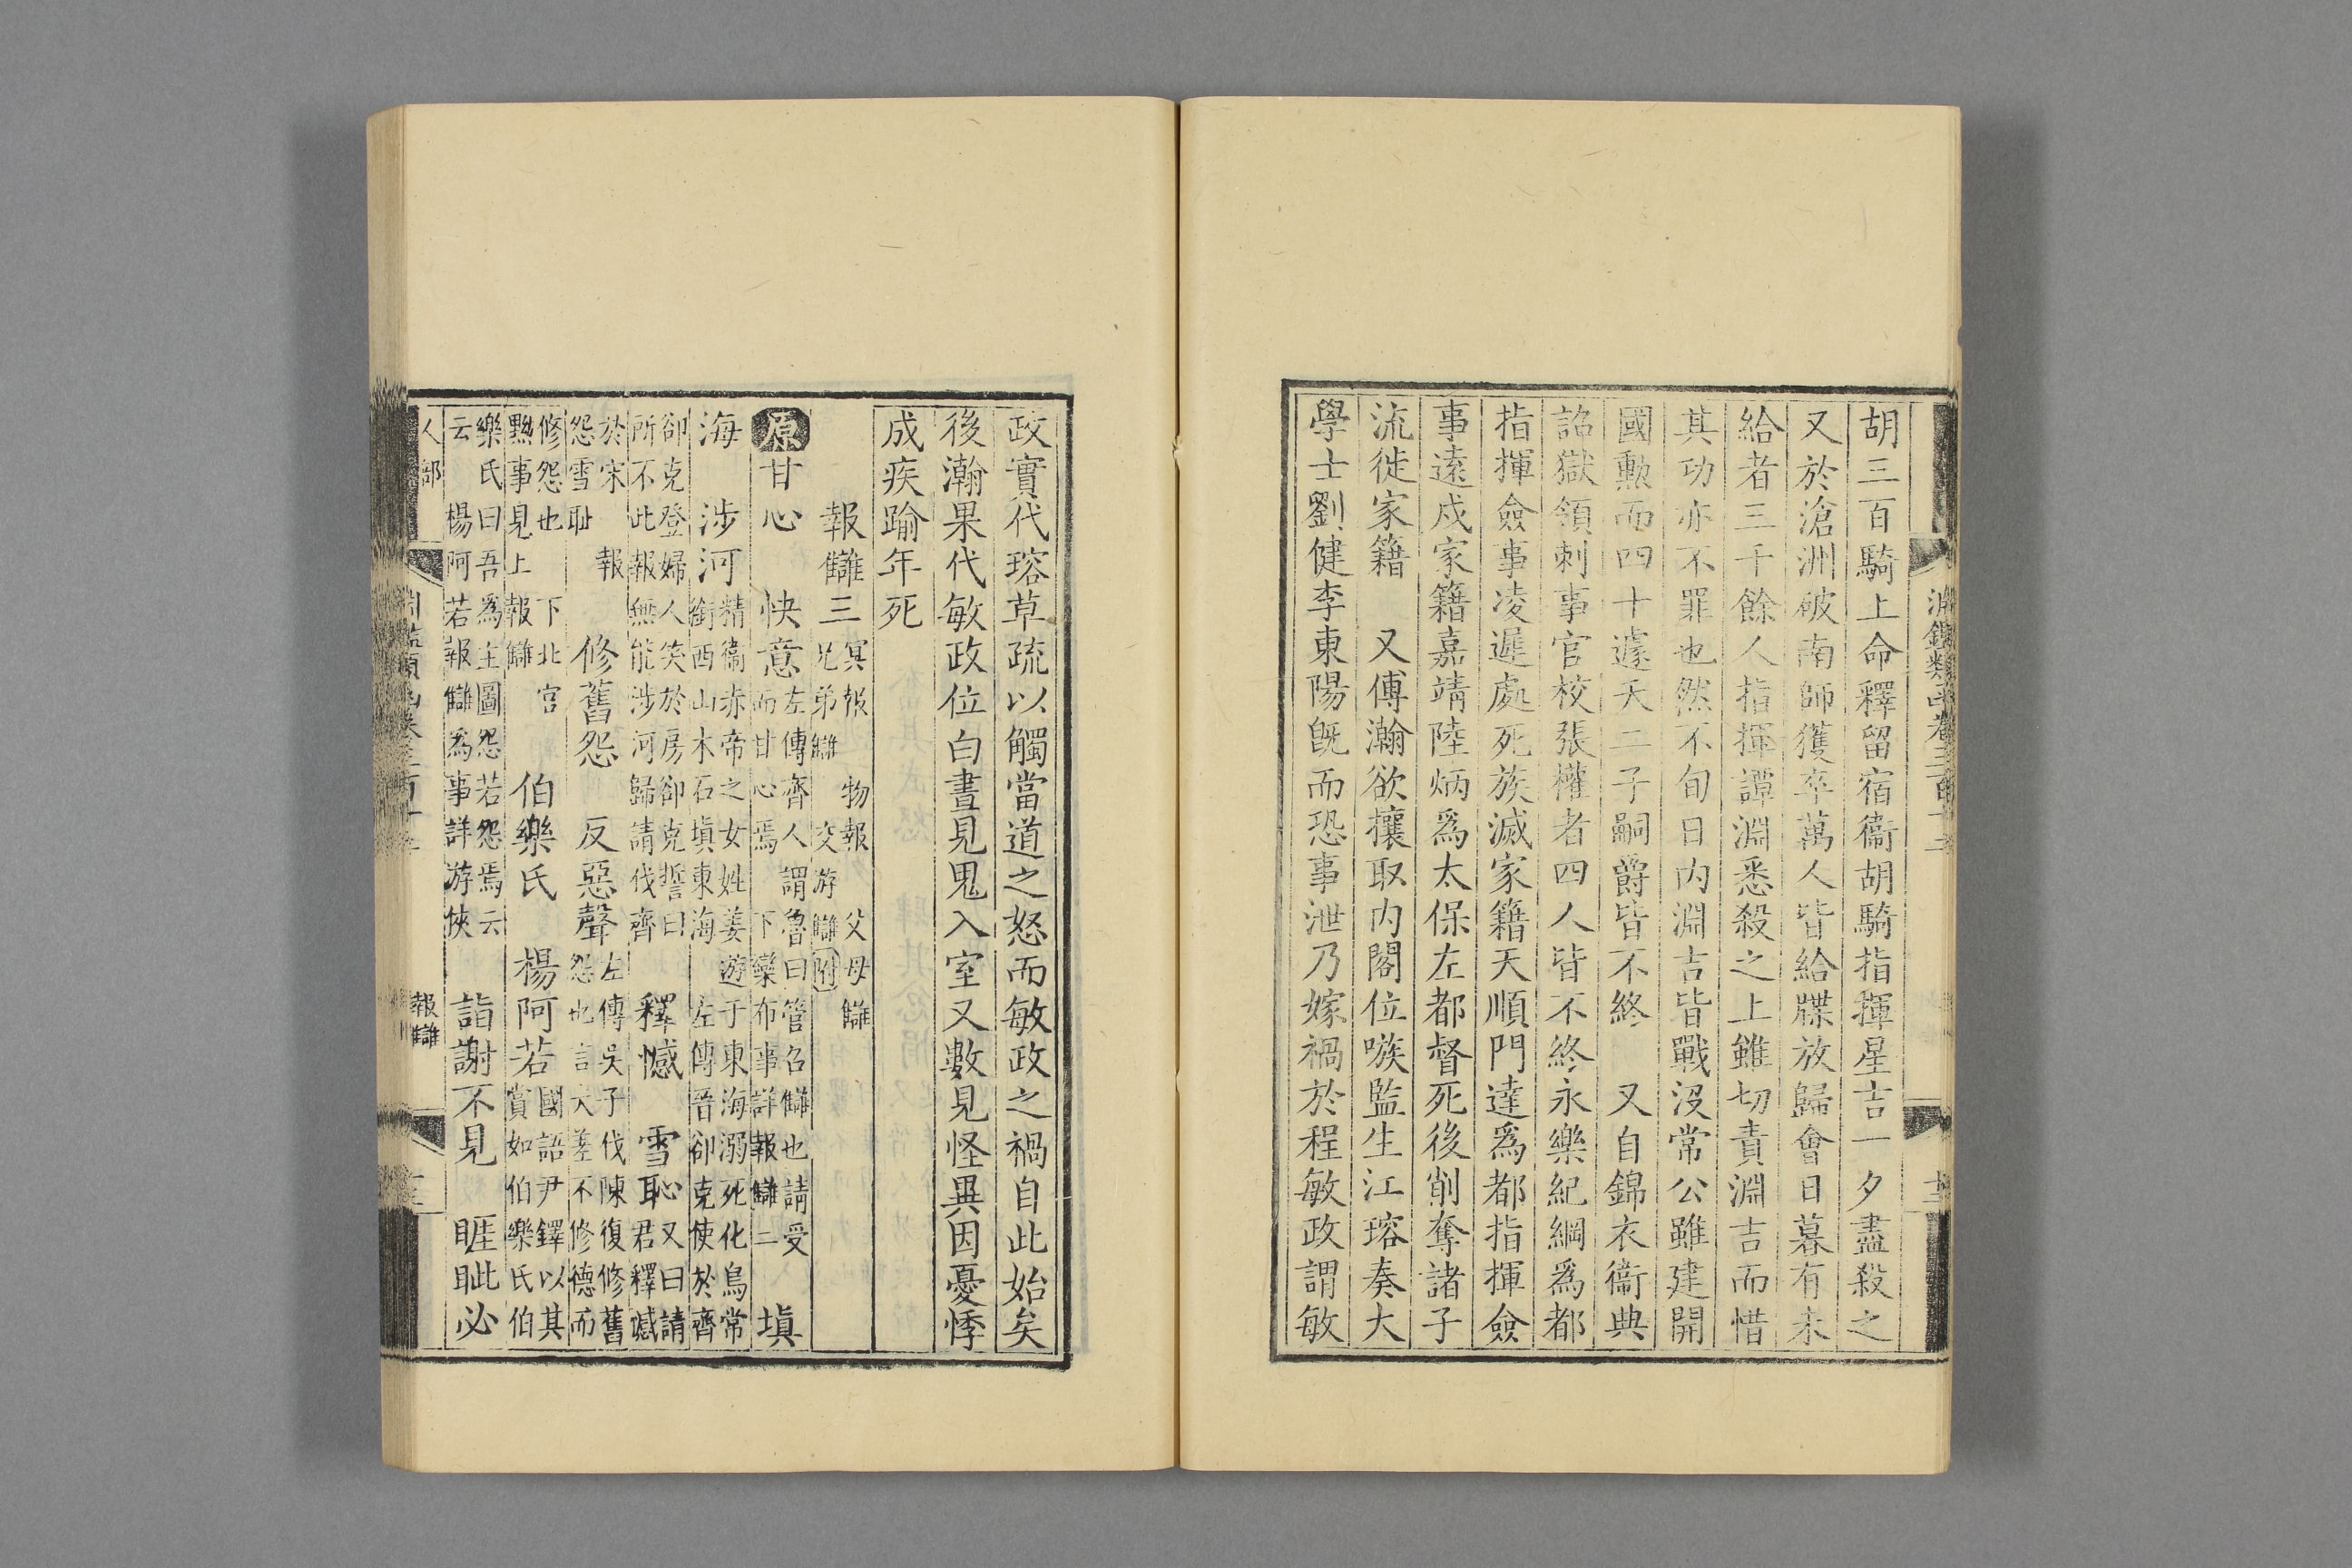 淵鑑類函卷三百十二
胡三百騎上命釋留宿衞胡騎指揮星吉一夕盡殺之
又於滄洲破南師獲卒萬人皆給牒放歸會日暮有未
給者三千餘人指揮譚淵悉殺之上雖切責淵吉而惜
其功亦不罪也然不旬日内淵吉皆戰沒常公雖建開
國勲而四十遽夭二子嗣爵皆不終　又自錦衣衞典
詔獄領刺事官校張權者四人皆不終永樂紀綱爲都
指揮僉事凌遲處死族滅家籍天順門達爲都指揮僉
事遠戍家籍嘉靖陸炳爲太保左都督死後削奪諸子
流徙家籍　又傅瀚欲攘取内閣位嗾監生江瑢奏大
學士劉健李東陽旣而恐事泄乃嫁禍於程敏政謂敏
政實代瑢草疏以觸當道之怒而敏政之禍自此始矣
後瀚果代敏政位白晝見鬼入室又數見怪異因憂悸
成疾踰年死
報讎三冥報　物報　父母讎
兄弟讎　交游讎附
原甘心　快意左傳齊人謂魯曰管召讎也請受
而甘心焉　下欒布事詳報讎二　塡
海　涉河精衞赤帝之女姓姜遊于東海溺死化鳥常
銜西山木石塡東海　左傳晉郤克使於齊
郤克登婦人笑於房郤克誓曰
所不此報無能涉河歸請伐齊　釋憾　雪恥又曰請
君釋憾
於宋　報
怨雪耻　修舊怨　反惡聲左傳吳子伐陳復修舊
怨也言夫差不修德而
修怨也　下北宮
黝事見上報讎　伯樂氏　楊阿若國語尹鐸以其
賞如伯樂氏伯
樂氏曰吾爲主圖怨若怨焉云
云　楊阿若報讎爲事詳游俠　詣謝不見　睚眦必
人部
報讎